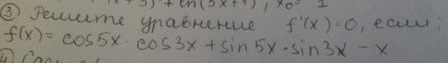 x+3)+ln(5x+1), x₀= 1
③ Решите уравнение f'(x)=0, если:
f(x)= cos5x· cos3x + sin5x·sin3x – x